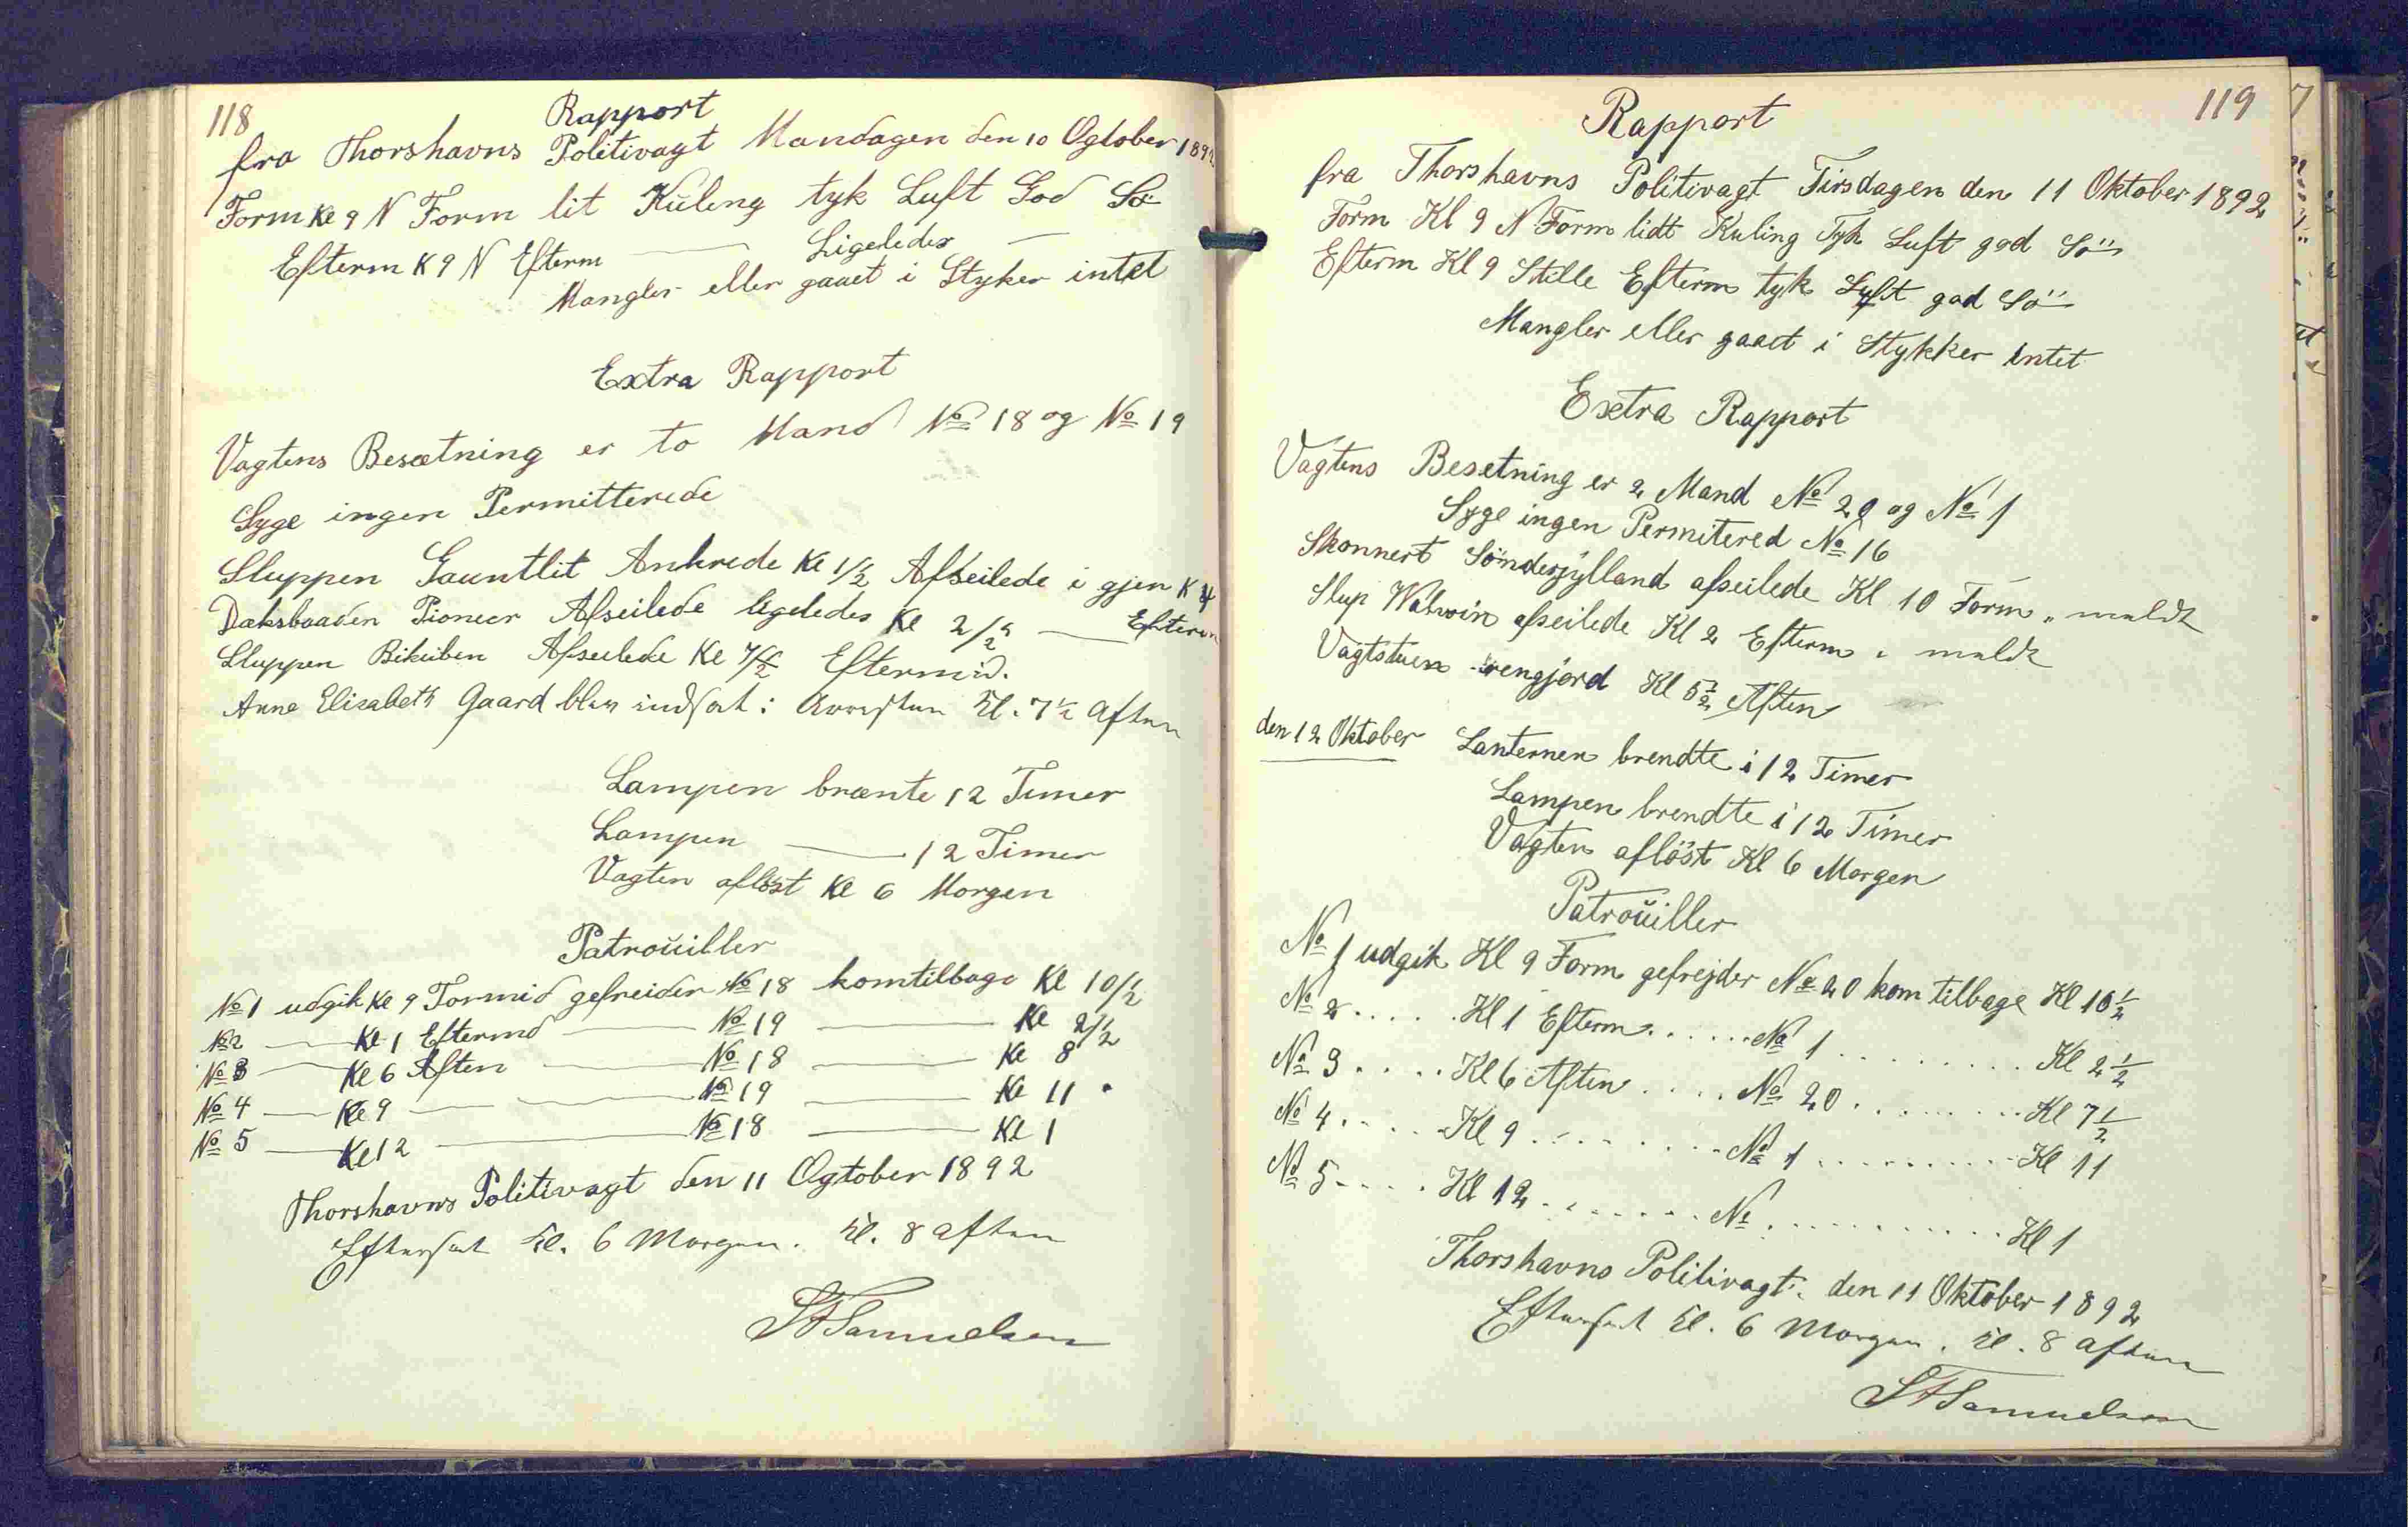 118
Rapport
fra Thorshavns Politivagt Mandagen den 10 Ogtober 1892
Form Kl 9 N Form lit Kuling tyk Luft God Sö
Efterm K 9 N Efterm — Ligeledes —
Mangler eller gaaet i Styker intet
Extra Rapport
Vagtens Besætning er to Mand No 18 og No 19
Syge ingen Permitterede
Sluppen Gauntlit Ankrede Kl 1/2 Afseilede i gjen K 4
Dæksbaaden Pioneer Afseilede ligeledes Kl 2/2 — Efterm
Sluppen Bikuben Afseilede Kl 4/2 Eftermid.
Anne Elisabeth Gaard blev indsat i Arresten Kl. 7 1/2 Aften
Lampen brænte 12 Timer
Lampen — 12 Timer
Vagten aflöst Kl 6 Morgen
Patrouiller
No 1 udgik Kl 9 Formid gefreider No 18 komtilbage Kl 10/2
No 2 — Kl 1 Eftermd — No 19 — Kl 2/2
No 3 — Kl 6 Aften — No 18 — Kl 8
No 4 — Kl 9 — No 19 — Kl 11
No 5 — Kl 12 — No 18 — Kl 1
Thorshavns Politivagt den 11 Ogtober 1892
Efterset Kl. 6 Morgen. Kl. 8 Aften
Samuelsen
119
Rapport
fra Thorshavns Politivagt Tirsdagen den 11 Oktober 1892
Form Kl 9 N Form lidt Kuling Tyk Luft god Sö
Efterm Kl 9 Stille Efterm tyk Luft god Sö
Mangler eller gaaet i Stykker intet
Extra Rapport
Vagtens Besetning er 2 Mand No 20 og No 1
Syge ingen Permitered No 16
Skonnert Sönderjylland afseilede Kl 10 Form "
Slup Walwin afseilede Kl 2 Efterm "
Vagtstuen rengjord Kl 5 1/2 Aften
den 12 Oktober Lanternen brendte i 12 Timer
Lampen brendte i 12 Timer
Vagten aflöst Kl 6 Morgen
Patrouiller
No 1 udgik Kl 9 Form gefrejder No 20 kom tilbage Kl 10 1/2
No 2 . . . . . Kl 1 Efterm . . . . . No 1 . . . . . . . . Kl 2 1/2
No 3 . . . . Kl 6 Aften . . . . No 20 . . . . . . . . Kl 7 1/2
No 4 . . . . Kl 9 . . . . . . . . No 1 . . . . . . . . . Kl 11
No 5 . . . . Kl 12 . . . . . . . No . . . . . . . . . . Kl 1
Thorshavns Politivagt. den 11 Oktober 1892
Efterset Kl. 6 Morgen. Kl. 8 Aften
Samuelsen